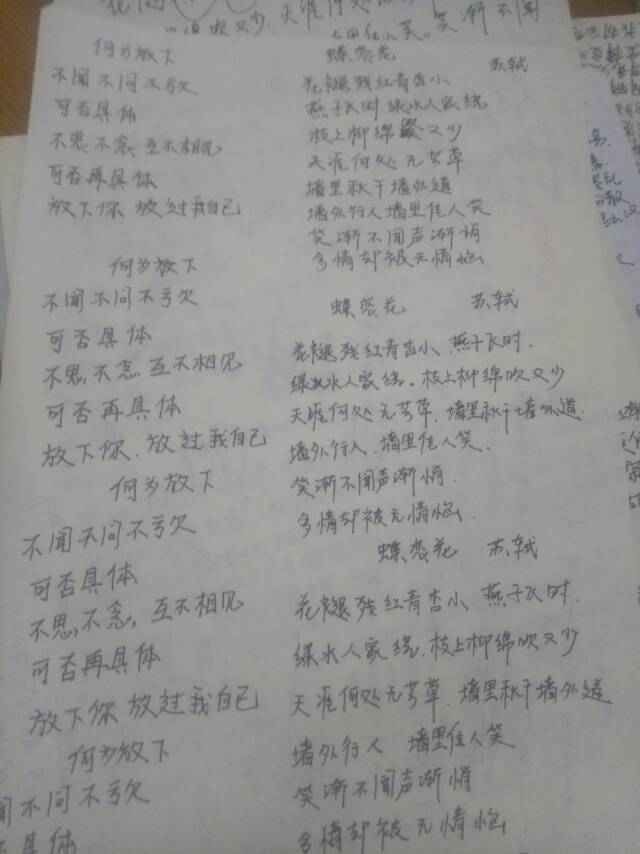 又少.天涯何处
笑渐不闻
何为放下
不闻不问不亏欠
可否具体
不思,不念,互不相见
可否再具体
放下你 放过我自己.
何为放下
不闻不问不亏欠
可否具体
不思,不念,互不相见
可否再具体
放下你,放过我自己
何为放下
不闻不问不亏欠
可否具体
不思,不念,互不相见
可否再具体
放下你 放过我自己
何为放下
闻不问不亏欠
具体
蝶恋花
苏轼
花褪残红青杏小
燕子飞时 绿水人家绕
枝上柳绵 又少
天涯何处无芳草
墙里秋千墙外道
墙外行人墙里佳人笑
笑渐不闻声渐悄
多情却被无情恼
蝶恋花 苏轼
花褪残红青杏小 燕子飞时.
绿水人家绕.枝上柳绵吹又少
天涯何处无芳草.墙里秋千墙外道.
墙外行人.墙里佳人笑.
笑渐不闻声渐悄.
多情却被无情恼.
蝶恋花 苏轼
花褪残红青杏小 燕子飞时.
绿水人家绕.枝上柳绵吹又少
天涯何处无芳草.墙里秋千墙外道
墙外行人 墙里佳人笑
笑渐不闻声渐悄
多情却被无情恼.